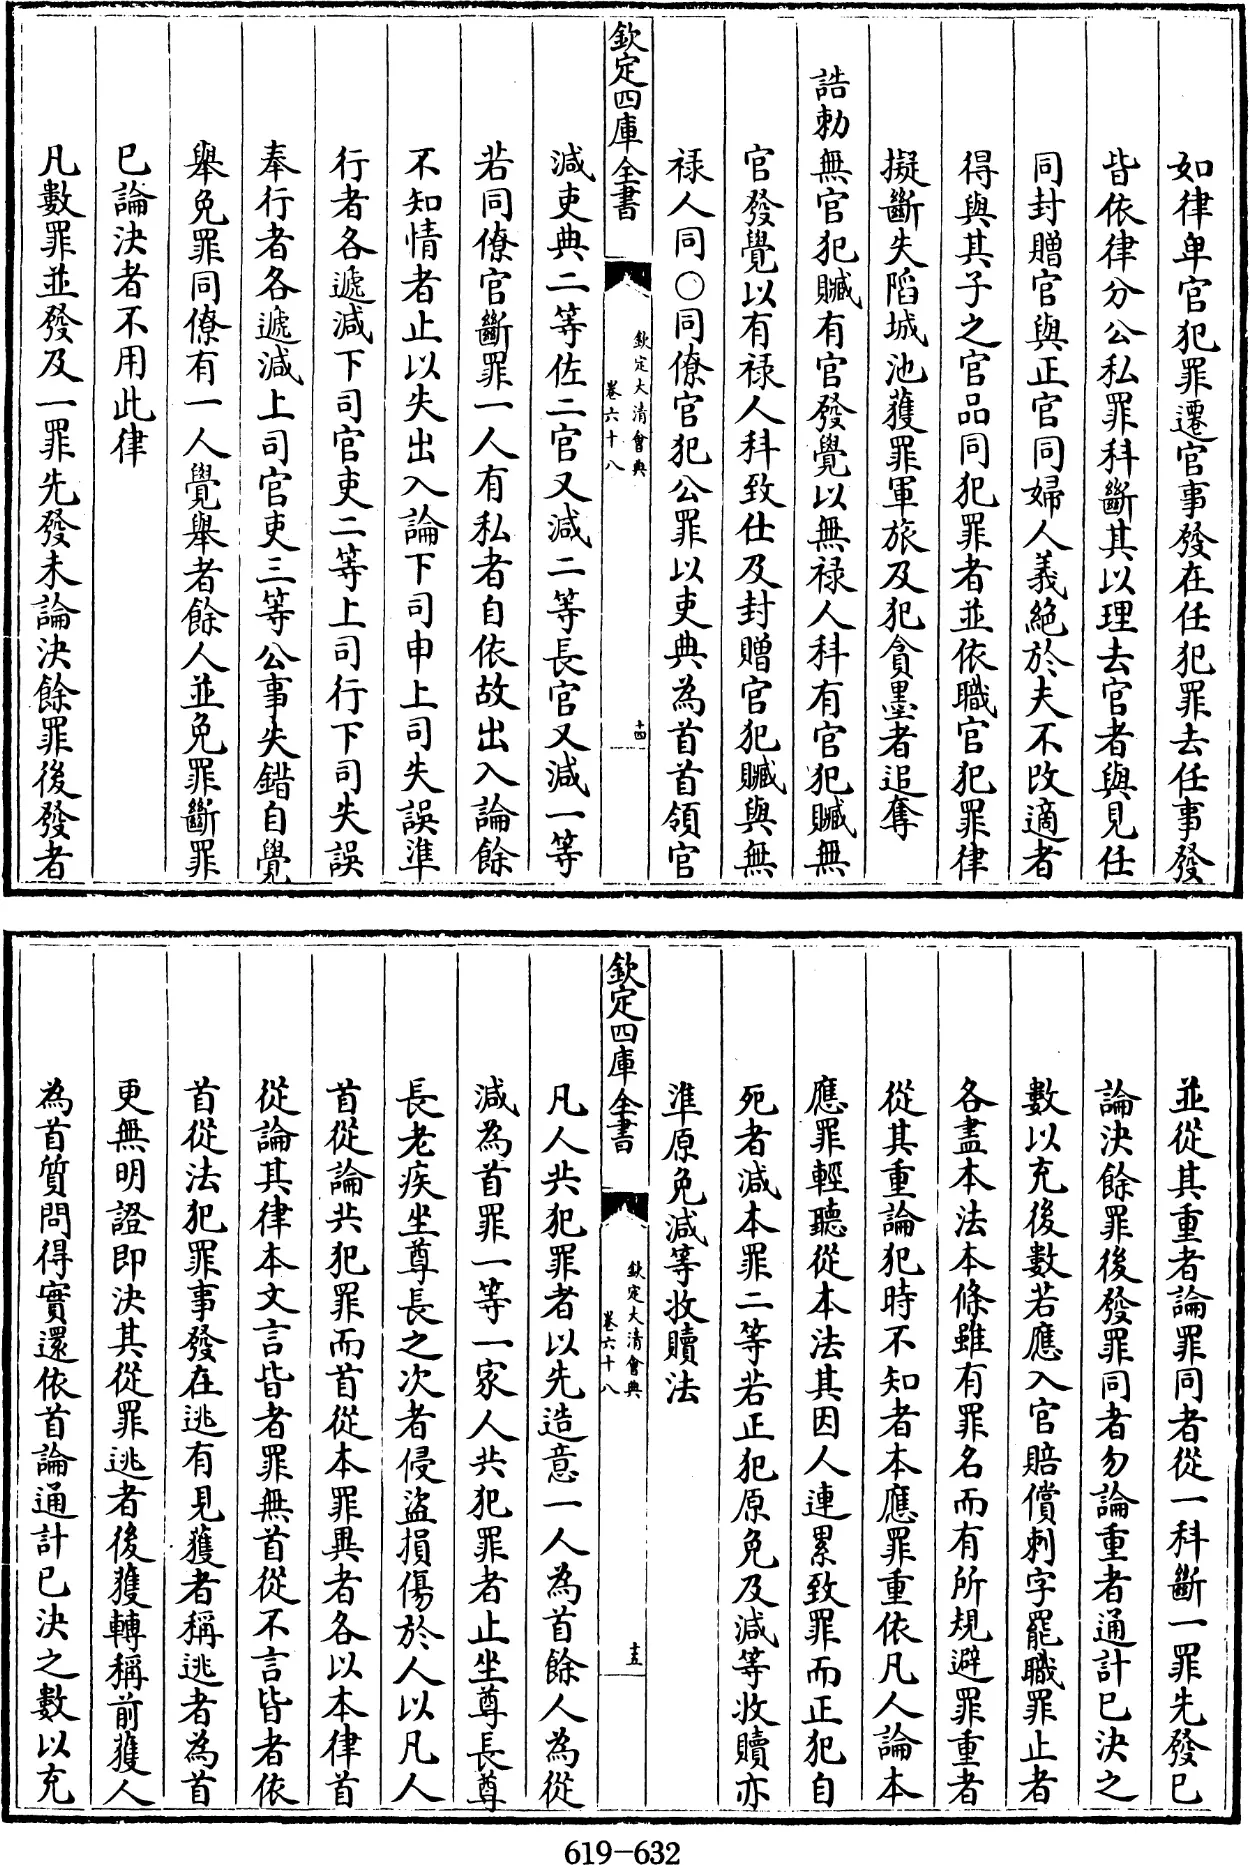 如律卑官犯罪遷官事發在任犯罪去任事發
皆依律分公私罪科斷其以理去官者與見任
同封贈官與正官同婦人義絶於夫不改適者
得與其子之官品同犯罪者並依職官犯罪律
擬斷失陷城池獲罪軍旅及犯貪墨者追奪
誥勅無官犯贓有官發覺以無禄人科有官犯贓無
官發覺以有禄人科致仕及封贈官犯贓與無
禄人同〇同僚官犯公罪以吏典為首首領官
欽定四庫全書
欽定大清會典
卷六十八
十四
減吏典二等佐二官又減二等長官又減一等
若同僚官斷罪一人有私者自依故出入論餘
不知情者止以失出入論下司申上司失誤準
行者各遞減下司官吏二等上司行下司失誤
奉行者各遞減上司官吏三等公事失錯自覺
舉免罪同僚有一人覺舉者餘人並免罪斷罪
已論決者不用此律
凡數罪並發及一罪先發未論決餘罪後發者
並從其重者論罪同者從一科斷一罪先發已
論決餘罪後發罪同者勿論重者通計已決之
數以充後數若應入官賠償刺字罷職罪止者
各盡本法本條雖有罪名而有所規避罪重者
從其重論犯時不知者本應罪重依凡人論本
應罪輕聽從本法其因人連累致罪而正犯自
死者減本罪二等若正犯原免及減等收贖亦
準原免減等收贖法
欽定四庫全書
欽定大清會典
卷六十八
十五
凡人共犯罪者以先造意一人為首餘人為從
減為首罪一等一家人共犯罪者止坐尊長尊
長老疾坐尊長之次者侵盜損傷於人以凡人
首從論共犯罪而首從本罪異者各以本律首
從論其律本文言皆者罪無首從不言皆者依
首從法犯罪事發在逃有見獲者稱逃者為首
更無明證即決其從罪逃者後獲轉稱前獲人
為首質問得實還依首論通計已決之數以充
619-632